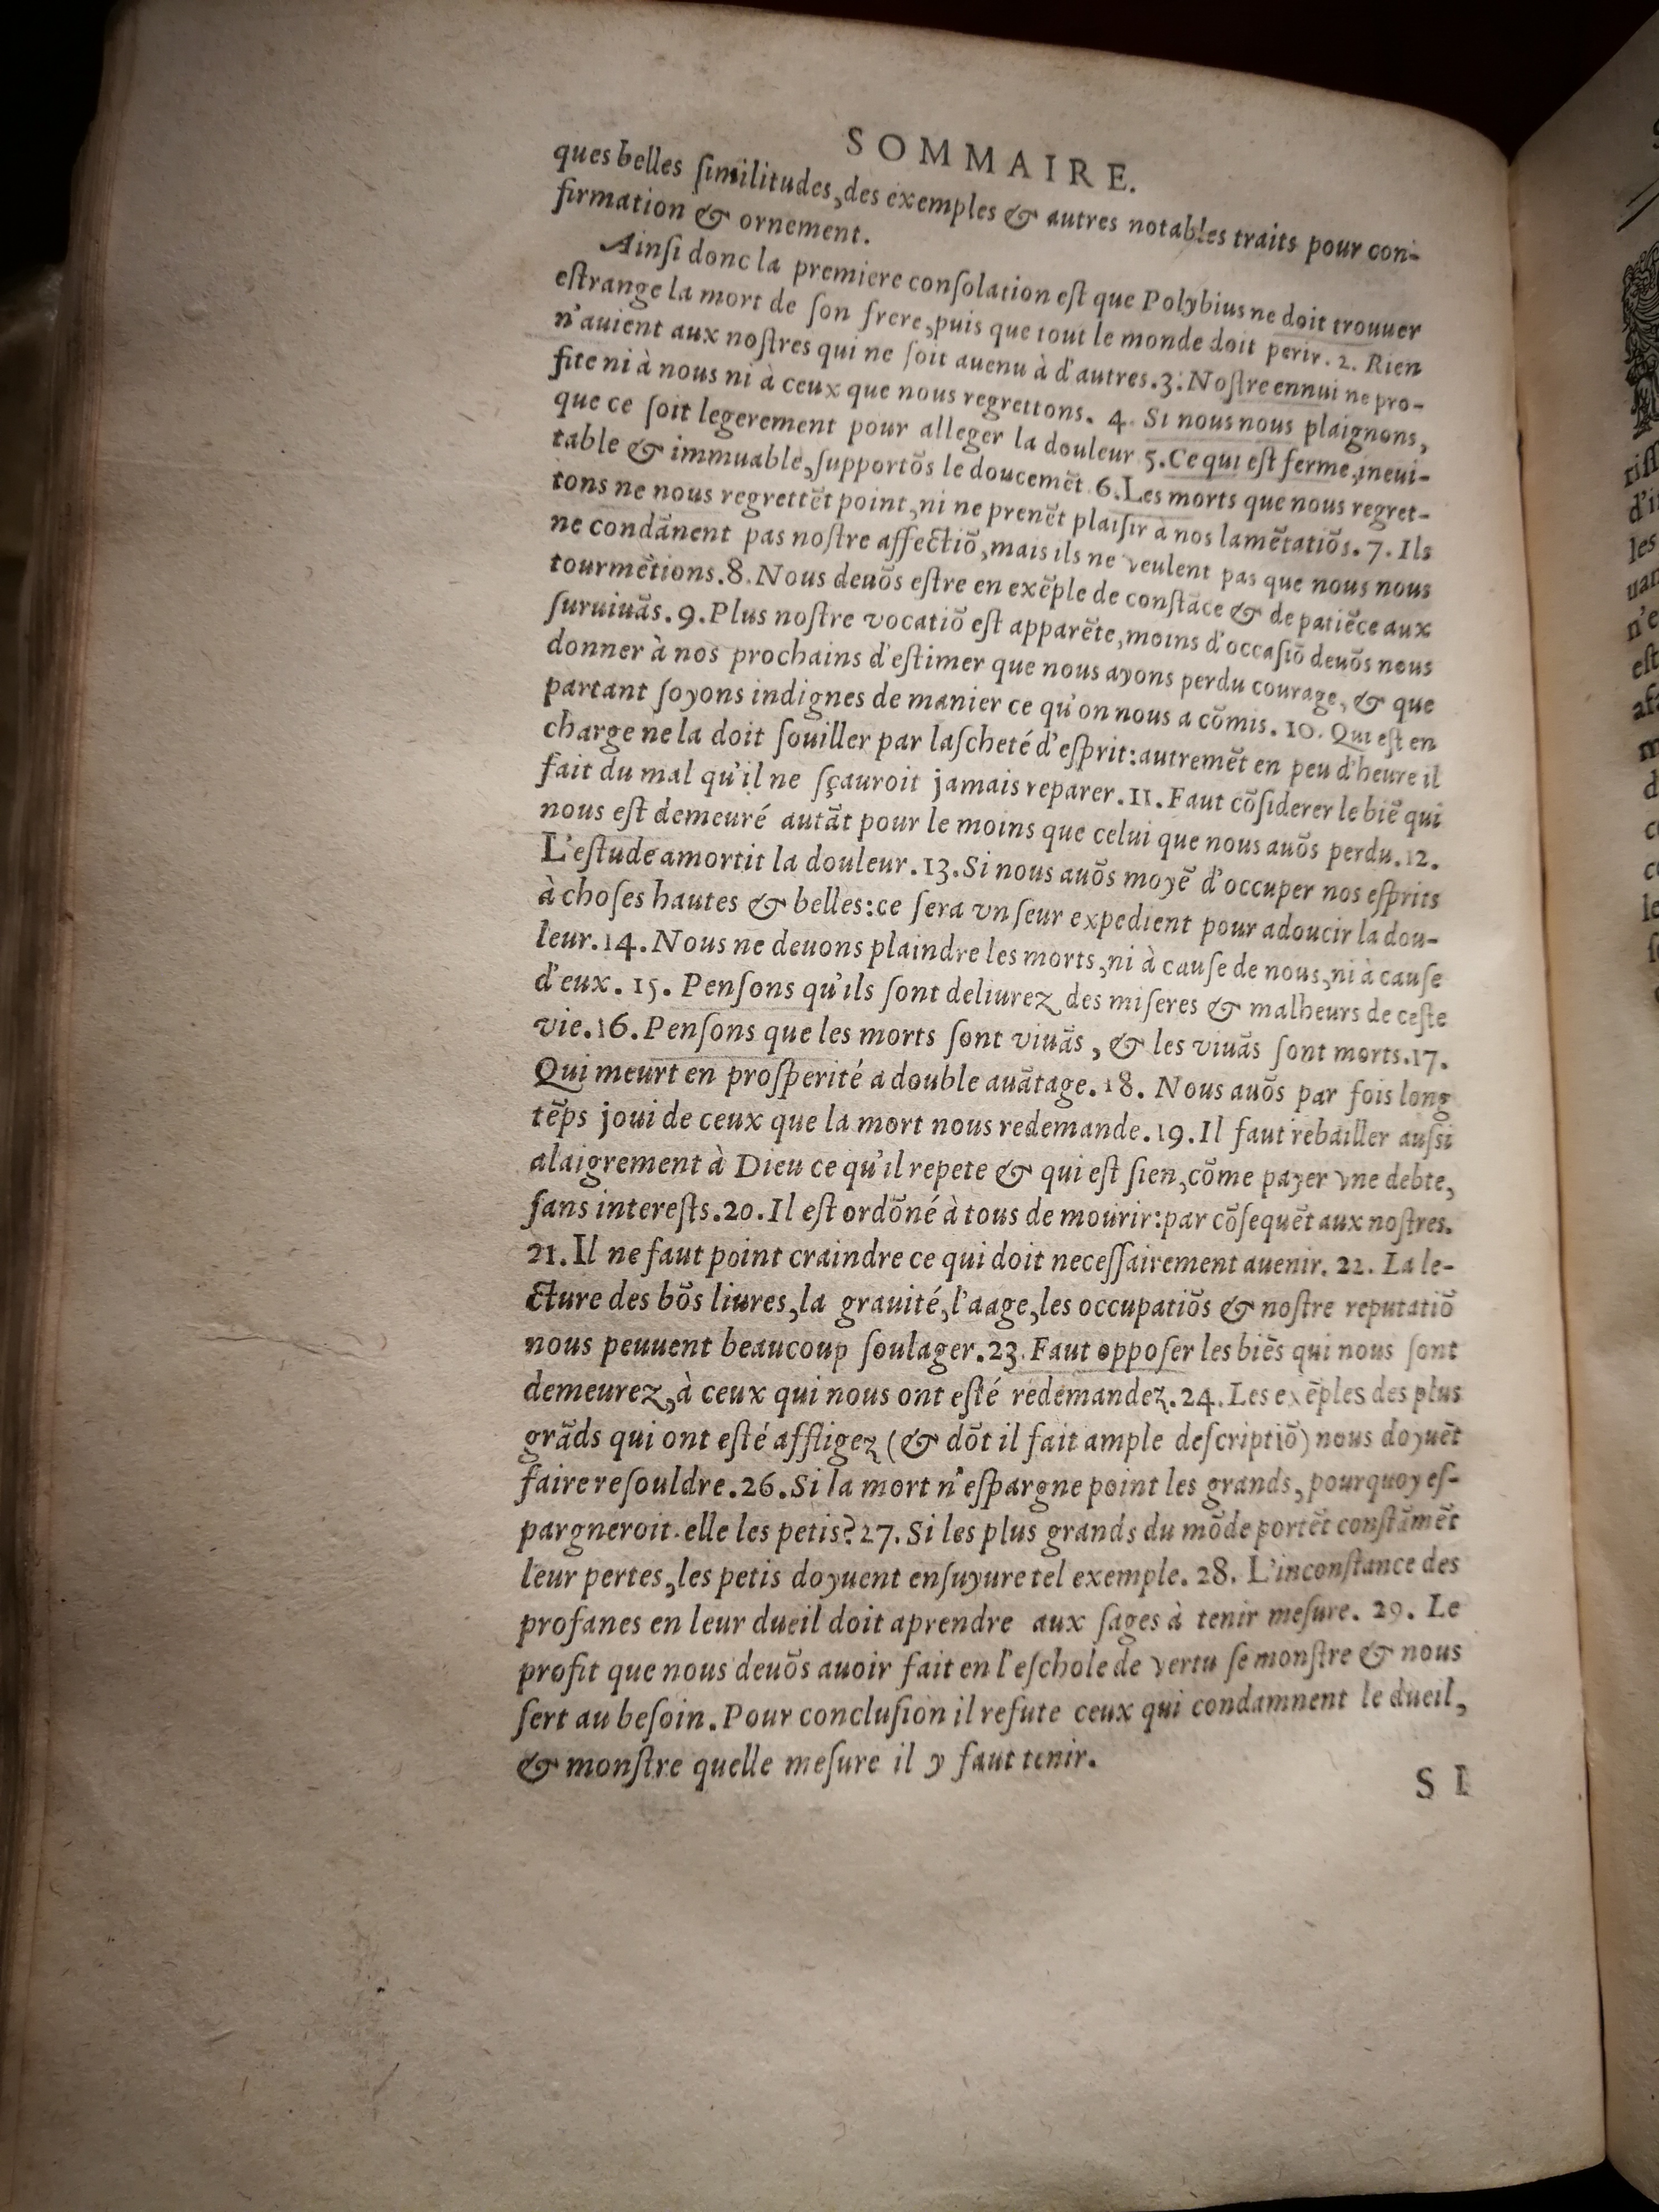 SOMMAIRE.
ques belles ſimilitudes, des exemples & autres notables traits pour con-
firmation & ornement.
Ainſi donc la premiere conſolation eſt que Polybius ne doit trouuer
eſtrange la mort de ſon frere, puis que tout le monde doit perir. 2. Rien
n'auient aux noſtres qui ne ſoit auenu à d'autres. 3. Noſtre ennui ne pro-
fite ni à nous ni à ceux que nous regrettons. 4. Si nous nous plaignons,
que ce ſoit legerement pour alleger la douleur 5. Ce qui eſt ferme, ineui-
table & immuable, ſupportõs le doucemẽt. 6. Les morts que nous regret-
tons ne nous regrettẽt point, ni ne prenẽt plaiſir à nos lamẽtatiõs. 7. Ils
ne condãnent pas noſtre affectiõ, mais ils ne veulent pas que nous nous
tourmẽtions. 8. Nous deuõs eſtre en exẽple de conſtãce & de patiẽce aux
ſuruiuãs. 9. Plus noſtre vocatiõ eſt apparẽte, moins d'occaſiõ deuõs nous
donner à nos prochains d'eſtimer que nous ayons perdu courage, & que
partant ſoyons indignes de manier ce qu'on nous a cõmis. 10. Qui eſt en
charge ne la doit ſouiller par laſcheté d'eſprit: autremẽt en peu d'heure il
fait du mal qu'il ne ſçauroit jamais reparer. 11. Faut cõſiderer le biẽ qui
nous eſt demeuré autãt pour le moins que celui que nous auõs perdu. 12.
L'eſtude amortit la douleur. 13. Si nous auõs moyẽ d'occuper nos eſprits
à choſes hautes & belles: ce ſera vn ſeur expedient pour adoucir la dou-
leur. 14. Nous ne deuons plaindre les morts, ni à cauſe de nous, ni à cauſe
d'eux. 15. Penſons qu'ils ſont deliurez des miſeres & malheurs de ceſte
vie. 16. Penſons que les morts ſont viuãs, & les viuãs ſont morts. 17.
Qui meurt en proſperité a double auãtage. 18. Nous auõs par fois long
tẽps joui de ceux que la mort nous redemande. 19. Il faut rebailler auſsi
alaigrement à Dieu ce qu'il repete & qui eſt ſien, cõme payer vne debte,
ſans intereſts. 20. Il eſt ordõné à tous de mourir: par cõſequẽt aux noſtres.
21. Il ne faut point craindre ce qui doit neceſſairement auenir. 22. La le-
cture des bõs liures, la grauité, l'aage, les occupatiõs & noſtre reputatiõ
nous peuuent beaucoup ſoulager. 23. Faut oppoſer les biẽs qui nous ſont
demeurez, à ceux qui nous ont eſté redemandez. 24. Les exẽples des plus
grãds qui ont eſté affligez (& dõt il fait ample deſcriptiõ) nous doyuẽt
faire reſouldre. 26. Si la mort n'eſpargne point les grands, pourquoy eſ-
pargneroit-elle les petis? 27. Si les plus grands du mõde portẽt conſtãmẽt
leur pertes, les petis doyuent enſuyure tel exemple. 28. L'inconſtance des
profanes en leur dueil doit aprendre aux ſages à tenir meſure. 29. Le
profit que nous deuõs auoir fait en l'eſchole de vertu ſe monſtre & nous
ſert au beſoin. Pour concluſion il refute ceux qui condamnent le dueil,
& monſtre quelle meſure il y faut tenir.
SI